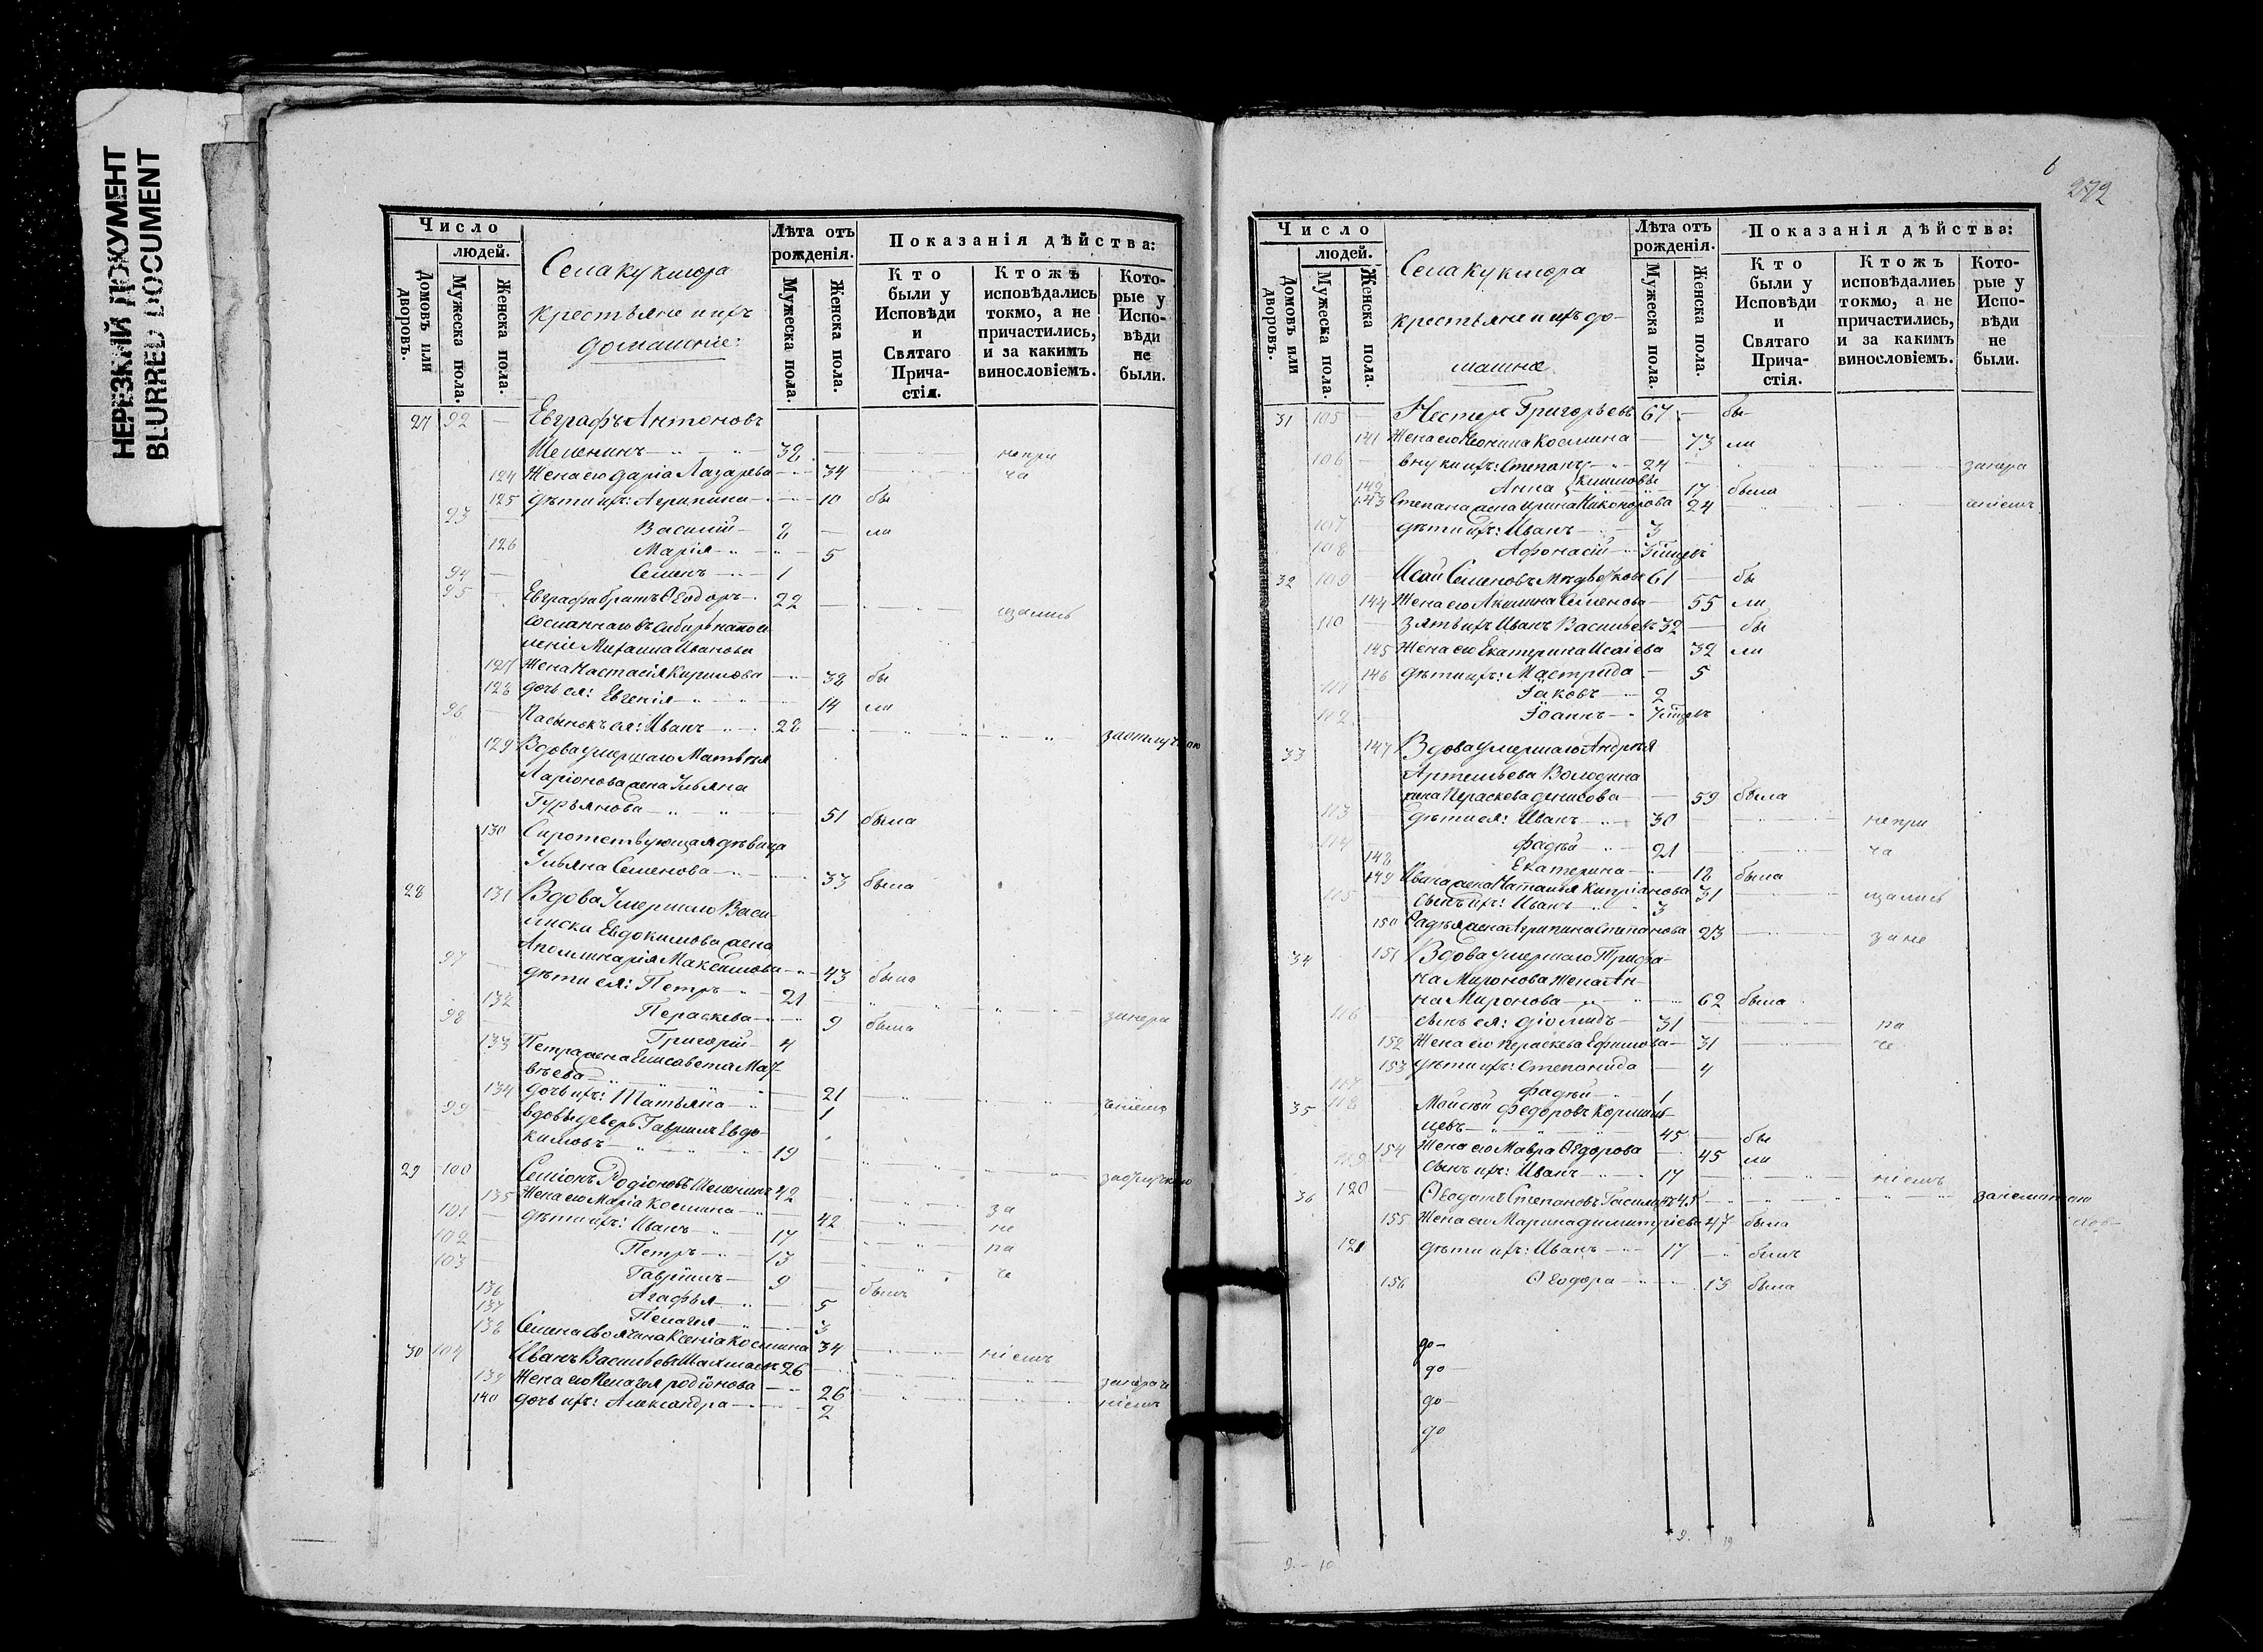 НЕРЕЗКИЙ ДОКУМЕНТ
BLURRED DOCUMENT
Число
людей.
Домовъ или дворовъ.
Мужеска пола.
Женска пола.
Села Куклюра
крестьяне и ихъ
домашніе:
Лѣта отъ рожденія.
Мужеска пола.
Женска пола.
Показанія дѣйства:
Кто были у Исповѣди и Святаго Прича-стія.
Ктожъ исповѣдались токмо, а не причастились, и за какимъ винословіемъ.
Кото-рые у Испо-вѣди не были.
27 92 — Евграфъ Антоновъ
Шеленинъ 32 непри
124 Жена его Дарія Лазарева 34 ча
125 дѣти ихъ: Агрипина 10 бы
93 Василій 8 — ли
126 Марія 5
94 Семенъ 1
95 Евграфа братъ Ѳеодоръ 22 щались
сосланнаго въ Сибирь на посе
леніе Михаила Иванова
127 жена Настасія Кирилова 38 бы
128 дочь ея: Евгенія 14 ли
96 Пасынокъ ея: Иванъ 22 — за отлучкою
129 Вдова умершаго Матвѣя
Ларіонова жена Ульяна
Гурьянова 51 была
130 Сиротствующая дѣвица
Ульяна Семенова 33 была
28 131 Вдова умершаго Васи-
лиски Евдокимова жена
Аполинарія Максимова 43 была
97 дѣти ея: Петръ 21
132 Пераскева 9 была занера
98 Григорій 4
133 Петра жена Елисавета Мат-
вѣева 21
134 дочь ихъ: Татьяна 1
99 вдовы деверь Гаврилъ Евдо-
кимовъ 19
29 100 Семіонъ Родіоновъ Шеленинъ 42
135 Жена его Марія Космина 42 за
101 дѣти ихъ: Иванъ 17 не
102 Петръ 13 ра
103 Гавріилъ 9 — былъ че
136 Агафья 5
137 Пелагея 3
138 Семена своячина Ксенія Космина 34 ніемъ
30 104 Иванъ Васильевъ 26
139 Жена его Пелагея Родіонова 26 занераче
140 дочь ихъ: Александра 2 ніемъ
6
272
Число
людей.
Домовъ или дворовъ.
Мужеска пола.
Женска пола.
Села Куклюра
крестьяне и ихъ до-
машніе
Лѣта отъ рожденія.
Мужеска пола.
Женска пола.
Показанія дѣйства:
Кто были у Исповѣди и Святаго Прича-стія.
Ктожъ исповѣдались токмо, а не причастились, и за какимъ винословіемъ.
Кото-рые у Испо-вѣди не были.
31 105 — Нестеръ Григорьевъ 67 — бы
141 Жена его Неонила Космина — 73 ли
106 — внуки ихъ: Степанъ 24 — занера
142 Анна Климовы 17 была
143 Степана жена Ирина Никонорова 24 чніемъ
107 дѣти ихъ: Иванъ 3
108 Афонасій 3 мцы
32 109 — Исай Семеновъ Медвѣдковъ 61 — бы
144 Жена его Акилина Семенова — 55 ли
110 — зять ихъ Иванъ Васильевъ 32 — бы
145 Жена его Екатерина Исаіева 32 ли
146 дѣти ихъ: Мастрида — 5
111 Іаковъ 2
112 Іоаннъ
33 147 Вдова умершаго Андрея
Артемьева Володина
жена Пераскева Денисова — 59 была
113 дѣти ея: Иванъ 30 непри
114 Фадѣй 21 ча
148 Екатерина 18 была
149 Ивана жена Наталья Кипріанова 31 щались
115 сынъ ихъ: Иванъ 3
150 Фадѣя жена Агрипина Степанова 23 за не
34 151 Вдова умершаго Трифо-
на Миронова жена Ан-
на Миронова 62 была
116 сынъ ея: Діомидъ 31 ра
152 Жена его Пераскева Ефимова 31 че
153 дѣти ихъ: Степанида — 4
117 Фадѣй 1
35 118 Мойсѣй Федоровъ
цевъ 45 — бы
154 Жена его Мавра Ѳедорова 45 ли
119 сынъ ихъ: Иванъ 17 ніемъ
36 120 — Ѳеодотъ Степановъ 45
155 Жена его Марина Димитріева 47 была
121 дѣти ихъ: Иванъ 17 — былъ
156 Ѳеодора 13 была
до
до
до
до